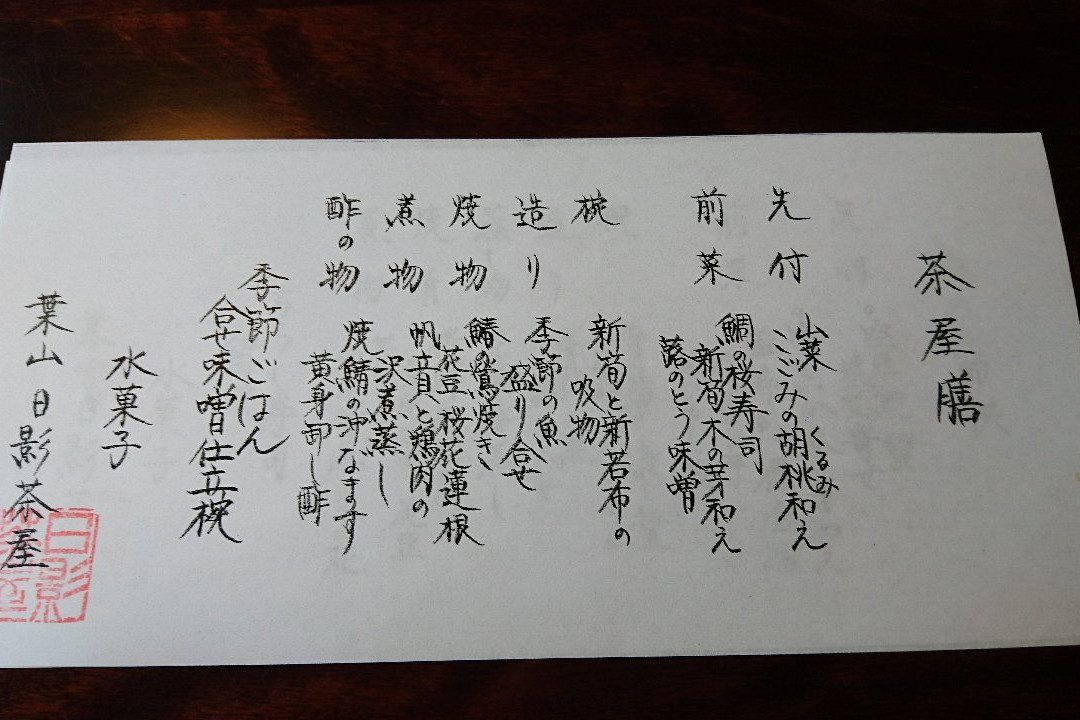 茶屋膳
先付 山菜こごみの胡桃和え
くるみ
前菜 鯛の桜寿司
新筍木の芽和え
蕗のとう味噌
椀 新筍と新若布の
吸物
造り 季節の魚
盛り合せ
焼物 鰆の鴬焼き
花豆 桜花蓮根
煮物 帆立貝と鶏肉の
沢煮蒸し
酢の物 焼鯖の沖なます
黄身卸し酢
季節ごはん
合せ味噌仕立椀
水菓子
葉山 日影茶屋
日影